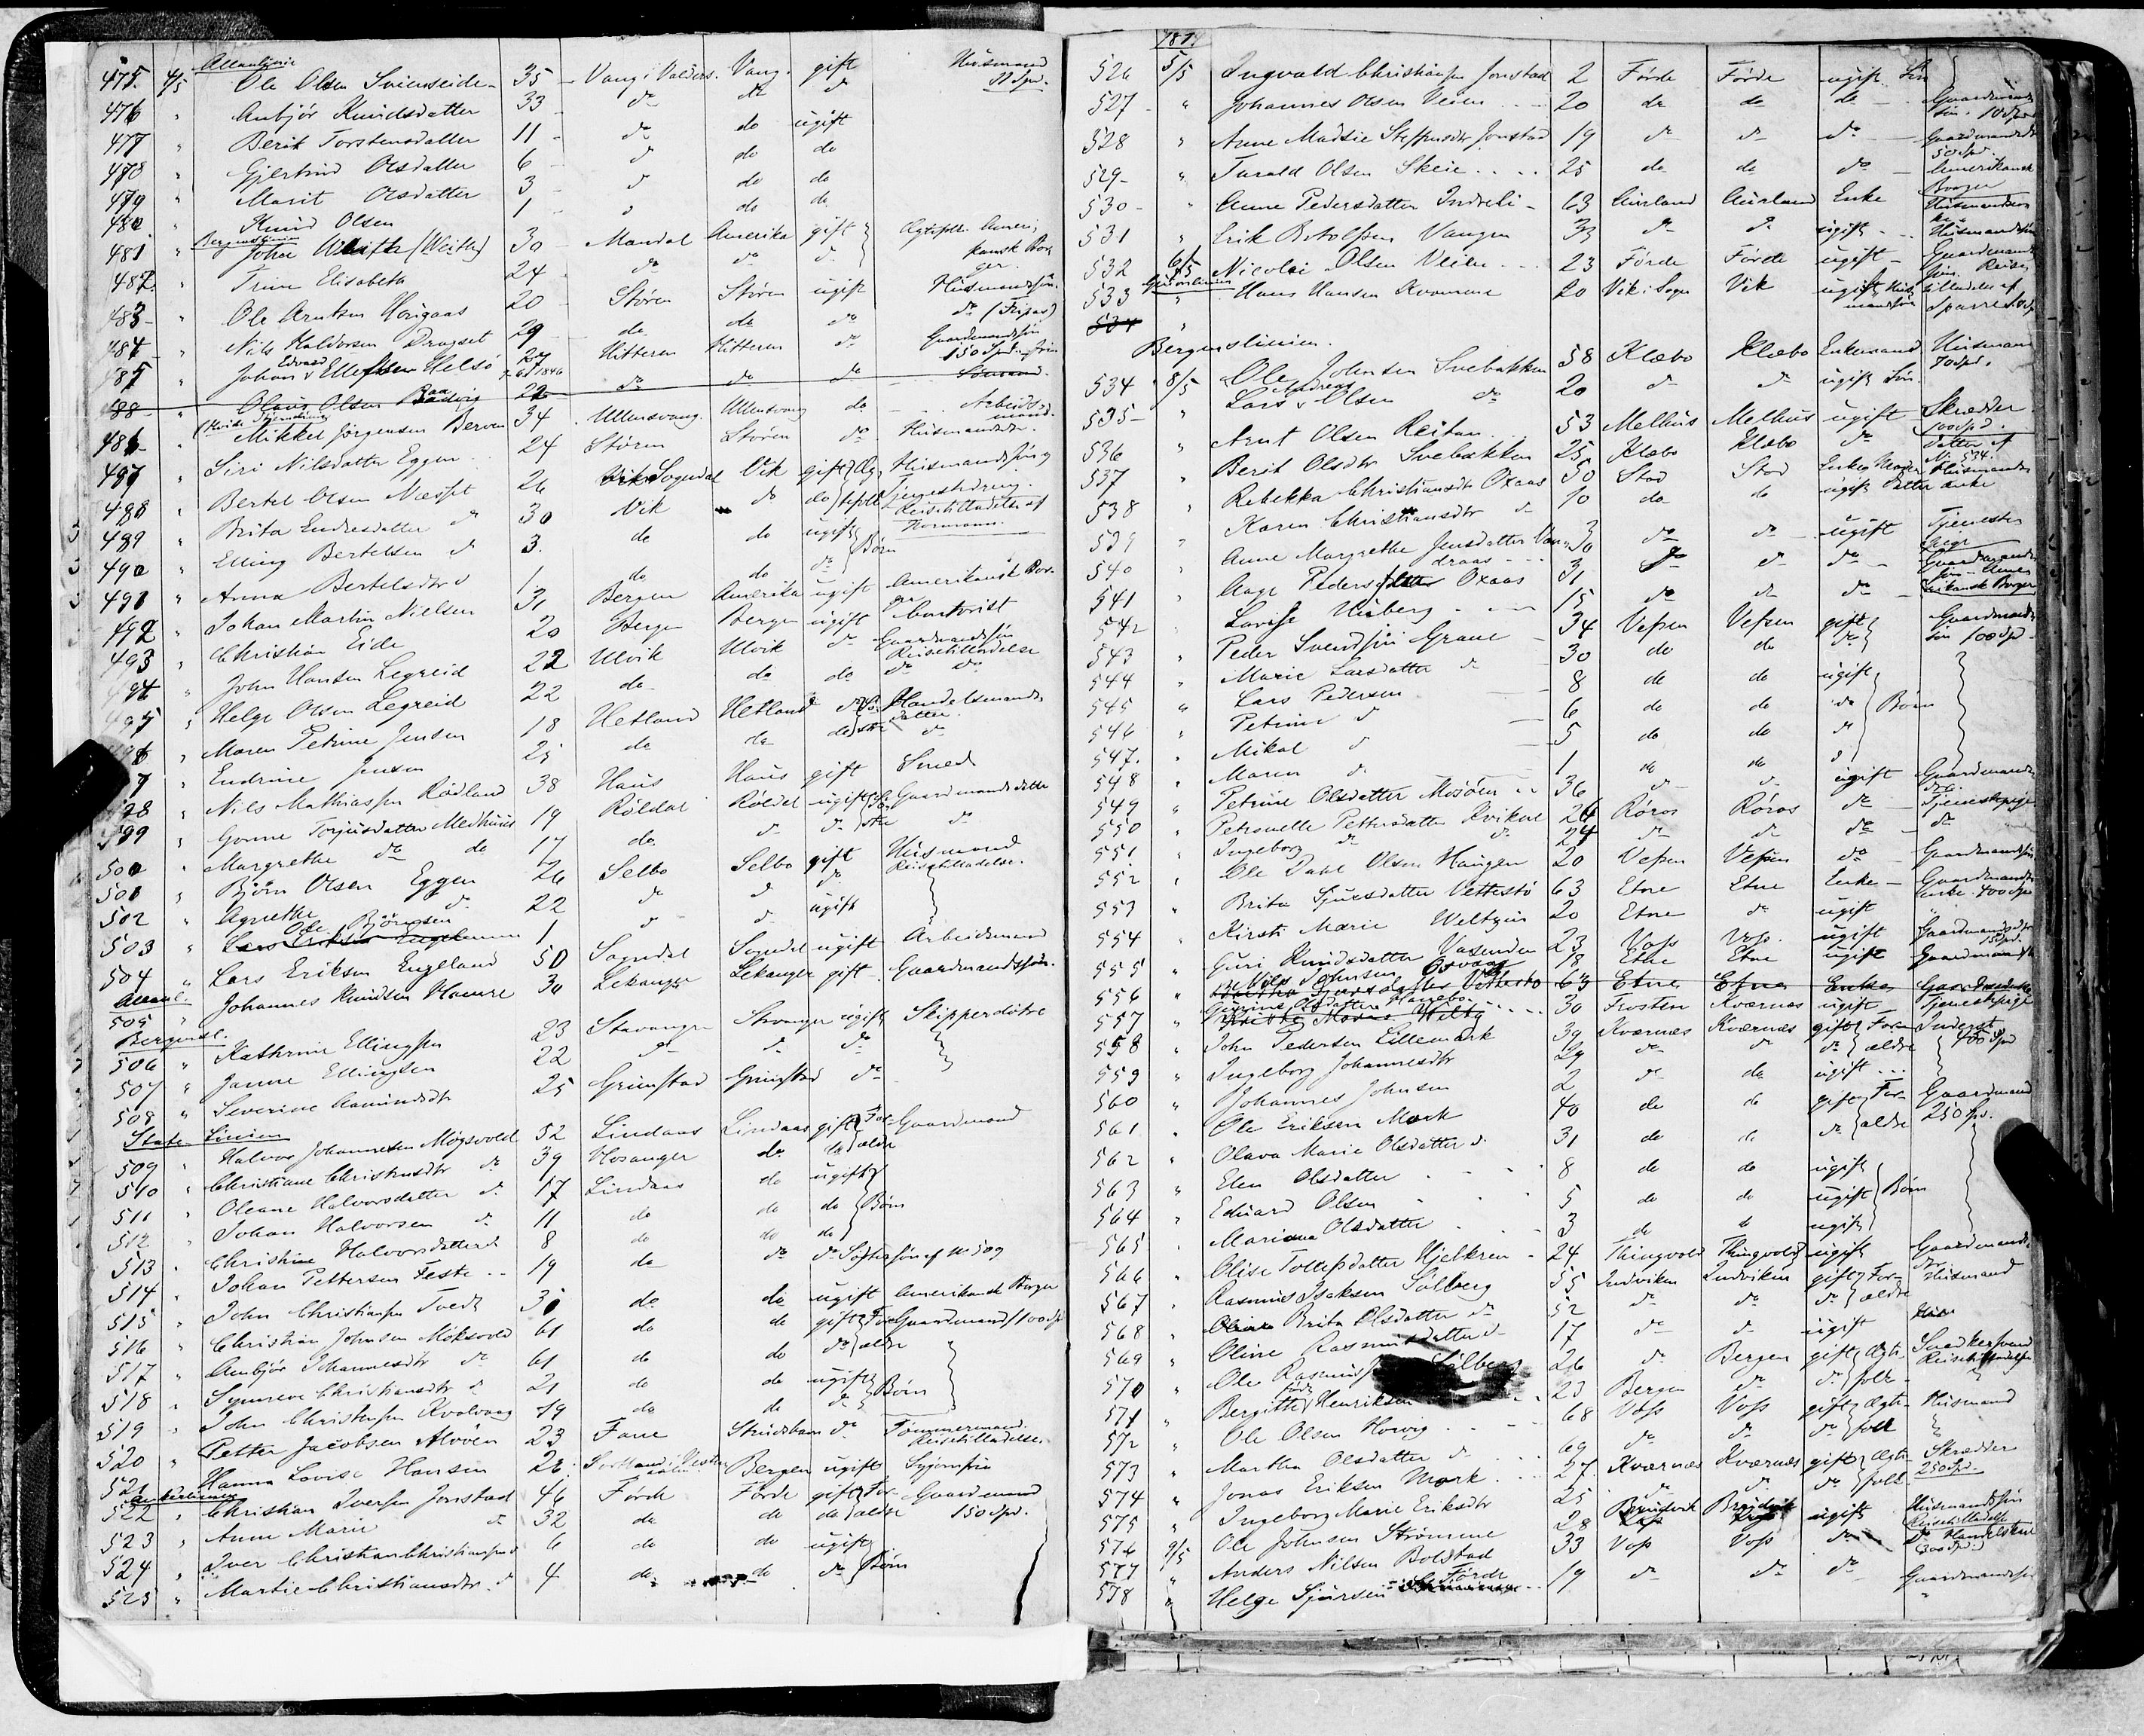 Allanlinie
475. 4/5 Ole Olsen 35 Vang i Valders. Vang. gift Husmand
476 " Anbjør Knudsdatter 33 do do d
477 " Berit Torstensdatter 11 do do ugift
478 " Gjertrud Olsdatter 6 d do do
479 " Marit Olsdatter 3 d do do
480. " Knud Olsen 1 d do do
481 " Johan (Weith) 30 Mandal Amerika gift
482. " Trine Elisabeth 24 do do d
483 " Ole Arntsen 20 Støren Støren ugift Husmandssøn
484 " Nils Haldorsen Dragset 29 do do do do (Fripas)
485 " Johan Edvard Ellefsen Helsø 27 Hitteren Hitteren do Gaardmandssøn 150 Spd.
488 " Olaus Olsen 22 do do do
486 " Mikkel Jørgensen Berven 34 Ullensvang. Ullensvang do Arbeidsmand
487 " Siri Nilsdatter Eggen 24 Støren Støren do Husmandsdr.
488 " Bertel Olsen 26 Sogndal Vik gift Husmandssøn
489 " Brita Endresdatter d 30 Vik do do
490 " Elling Bertelsen d 3. do do ugift Børn
491 " Anna Bertelsdtr d 1 do do do
492 " Johan Martin Nielsen 31 Bergen Amerika ugift Amerikansk Borger
493 " Christian Eide 20 Bergen Bergen ugift Contorist
494 " John Hansen Legreid 22 Ulvik Ulvik do Gaardmandssøn Reisetilladelse
495 " Helge Olsen Legreid 22 do do do do do
" Maren Petrine Jensen 18 Hetland Hetland do Handelsmands datter.
" Endrine Jensen 25 do do do d
" Nils Mathiassen Rødland 38 Haus Haus gift Smed
" Gonne Torjusdatter Medhuus 19 Røldal Røldal ugift Gaardmandsdatter
500 " Margrethe do do 17 do d d d
501 " Bjørn Olsen Eggen 26 Selbo Selbo gift Husmand Reisetilladelse.
502 " Agnethe d 22 d d do
503 " Ole Bjørnsen 1 d d ugift
504 " Lars Eriksen Engeland 50 Sogndal Sogndal ugift Arbeidsmand
505 " Johannes Knudsen Hamre 30 Lekanger Lekanger gift Gaardmandssøn.
Bergensl.
506 " Kathrine Ellingsen 23 Stavanger Stavanger ugift Skipperdøtre
507 " Janne Ellingsen 22 d d do
508 " Severine Aamundsdtr 25 Grimstad Grimstad do
State Linien
509 " Halvor Johannesen Møgsvold 52 Lindaas Lindaas gift Forældre Gaardmand
510 " Christiane Christensdtr do 39 Hosanger do do
511 " Oleane Halvorsdatter d. 17 Lindaas do ugift
512 " Johan Halvorsen d. 11 do do do Børn
513 " Christine Halvorsdatter d 8 do do do
514 " Johan Pettersen Feste 19 do do do Søstersøn af No 509
515 " John Christiansen Tvedt 30 do do ugift Amerikansk Borger
516 " Christian Johnsen Møksvold 61 do do gift Forældre Gaardmand
517 " Anbjør Johannesdtr do 61 do do do
518 " Synneve Christiansdtr d 21 do do ugift Børn
519 " John Christensen Kvalvaag 19 do do d
520 " Petter Jacobsen Alvøen 23 Fane do Tømmermand. Reisetilladelse.
521 " Hanna Lovise Hansen 26. Bergen ugift Syjomfru
Ankerlinien
522 " Christian Iversen Jonstad 46 Førde Førde gift Forældre Gaardmand 150 Spd.
523 " Anne Marie do 32 do do do
524 " Iver Christian Christiansen d 6 do do ugift Børn
525 " Martie Christiansdtr. d 4 do do do
1874
526 5/5 Ingvald Christiansen Jonstad 2 Førde Førde ugift Søn
527 " Johannes Olsen Veien 20 do do do Gaardmands søn. 100 Spd
528 " Anne Madsie Steffensdtr Jonstad 19 do d do Gaardmandsdtr 50 Spd.
529 " Tarald Olsen Skeie 25 do do do Amerikansk Borger
530 " Anne Pedersdatter Indreli 63 Aurland Aurland Enke Husmandsenke
531 " Erik Botolfsen Vangen 33 do d ugift Husmandssøn
532 6/5 Nicolai Olsen Veien 23 Førde Førde ugift Gaardmandssøn. Reisetilladelse af
533 " Hans Hansen Kvamme 20 Vik i Sogn Vik ugift Husmandssøn Sparre
534 "
Bergenslinien.
534 8/5 Ole Johnsen Svebakken 58 Klæbo Klæbo Enkemand Husmand 70 Spd.
535 " Lars Andreas Olsen do 20 d d ugift Søn.
536 " Arnt Olsen Reitan 53 Melhus Melhus ugift Skrædder 100 Spd.
537 " Berit Olsdtr Svebakken 25 Klæbo Klæbo do datter af No 534.
538 " Rebekka Christiansdtr Oxaas 50 Stod Stod Enke, Moder Husmandsenke
539 " Karen Christiansdtr d 10 do do ugift datter
540 " Anne Margrethe Jensdatter 30 do do ugift Tjenestepige
541 " Aage Pedersen Oxaas 31 do d do Gaardmandssøn. Amerikansk Borger
542 " Lovise Husberg 15 do d do
543 " Peder Svendsen Grane 34 Vefsen Vefsen gift Gaardmandssøn 100 Spd
544 " Marie Larsdatter d 30 do do do
545 " Lars Pedersen 8 do do ugift
546 " Petrine d 6 do do do Børn
547. " Mikal d 5 do do d
548 " Maren d 1 do do d
549 " Petrine Olsdatter Mosøen 36 d d ugift Gaardmandsdtr.
550 " Petronelle Pettersdatter Kvikne 26 Røros Røros do Tjenestepige
551 " Ingeborg d d 24 d d do d
552 " Ole Dahl Olsen Haugen 20 Vefsen Vefsen do Gaardmandssøn
553 " Brita Sjursdatter Vettestø 63 Etne Etne Enke Gaardmandsenke 400 Spd
554 " Kirsti Marie Weltzin 20 Etne d ugift
555 " Guri Knudsdatter Vasenden 23 Voss Voss. ugift Gaardmandsdtr 15 Spd.
Nils Johnsen Osvaag 18 Etne Etne ugift Gaardmandssøn
556 " 63 Etne Etne Enke
557 " Olsdatter 30 Frosten Kværnes ugift Tjenestepige
558 " John Pedersen Lillemark 39 Kværnes Kværnes gift Forældre Inderst 400 Spd
559 " Ingeborg Johannesdtr 29 do d do
560 " Johannes Johnsen 2 d do ugift
561 " Ole Eriksen Mork 40 do do gift Forældre Gaardmand 250 Spd.
562 " Olava Marie Olsdatter d. 31 do d do
563 " Elen Olsdatter 8 do do ugift
564 " Eduard Olsen 5 do do ugift Børn
565 " Mariana Olsdatter 3 do do ugift
566 " Olise Tollefsdatter Hjelkren 24 Thingvold Thingvold ugift Gaardmandsdtr
567 " Rasmus Isaksen Sølberg 55 Indviken Indviken gift Forældre Husmand
568 " Brita Olsdatter do 52 do do do
569 " Oline Rasmusdatter d 17 do d ugift
570 " Ole Rasmussen Sølberg 26 do Bergen gift Ægtefolk Snedkersvend Reisetilladelse
571 " Bergitte født Henriksen 23 Bergen do do
572 " Ole Olsen Horvig 68 Voss Voss gift Ægtefolk Husmand
573 " Martha Olsdatter d 69 do d do
574 " Jonas Eriksen Mork 27. Kværnes Kværnes gift Ægtefolk Skrædder 250 Spd.
575 " Ingeborg Marie Eriksdtr 25 d d do
576 9/5 Ole Johnsen Strømme 28 ugift Husmandssøn Reisetilladelse
577 " Anders Nilsen Bolstad 33 Voss Voss do
578 " Helge Sjursen Førde 19 d do do Gaardmandssøn